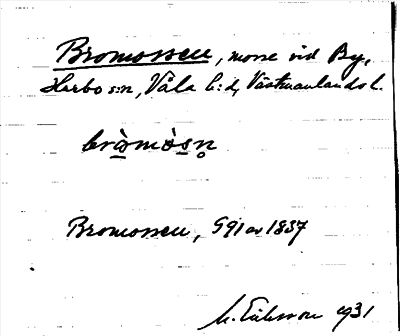 Bromossen, mosse vid By,
Harbo s:n, Våla h:d, Västmanlands l.
bròmòsn̥
Bromossen, G91 av 1837
M. Eriksson 1931